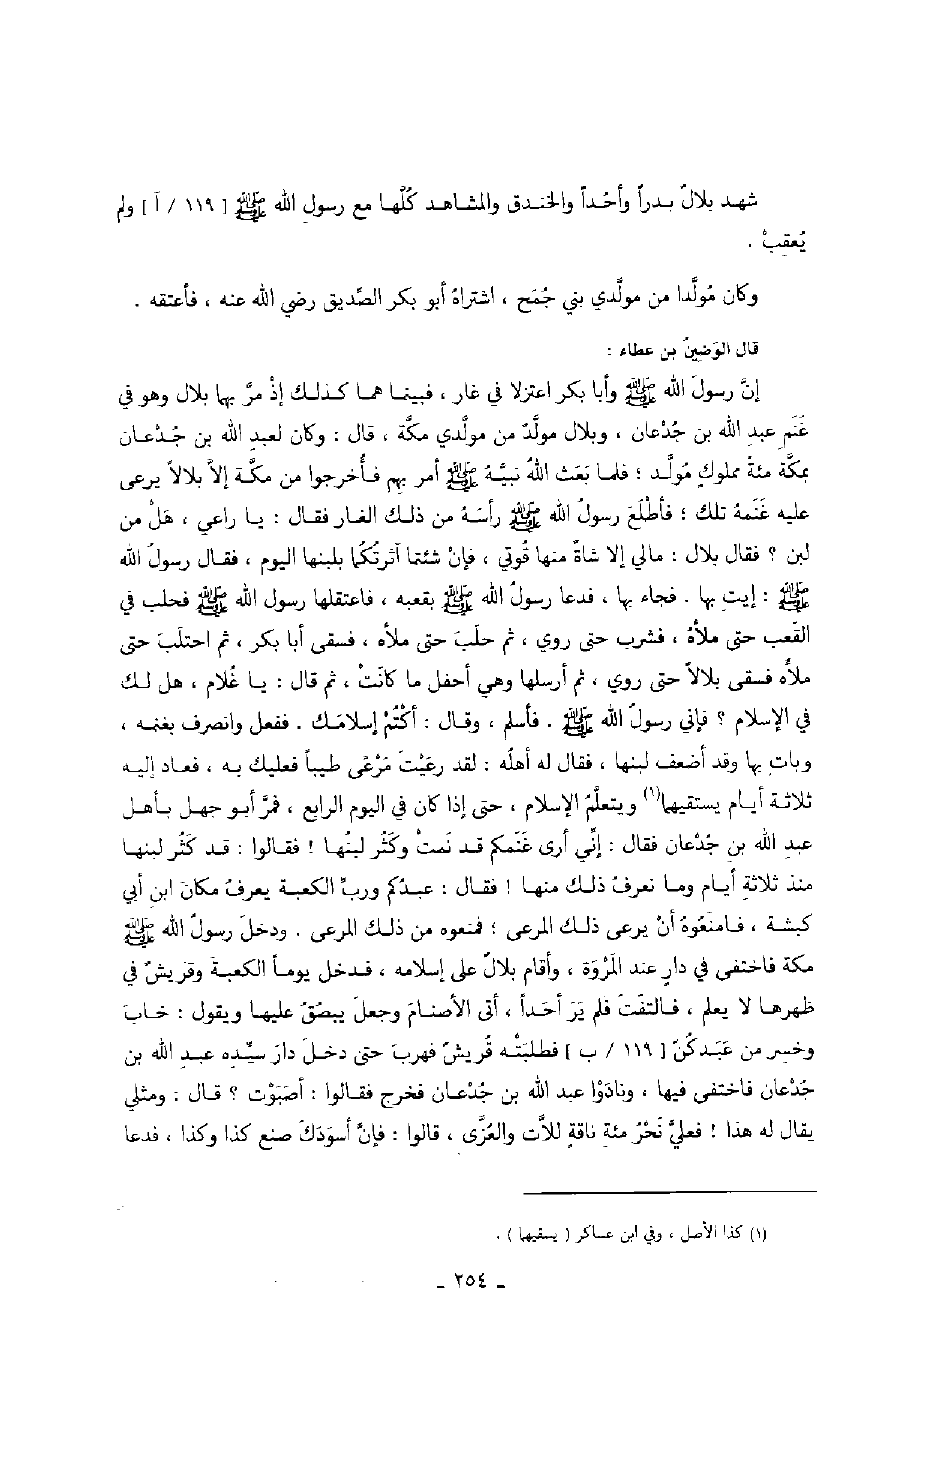 شهد بلالٌ بدراً وأُحُداً والخندق والمشاهد كُلَّها مع رسول الله ﷺ [ ١١٩ / آ ] ولم
يُعقِبْ .
وكان مُولَّدا من مولَّدي بني جُمَح ، اشتراهُ أبو بكر الصِّديق رضي الله عنه ، فأعتقه .
قال الوَضينُ بن عطاء :
إنَّ رسولَ الله ﷺ وأبا بكر اعتزلا في غار ، فبينما هما كذلك إذْ مرَّ بهما بلال وهو في
غَنَمِ عبد الله بن جُدْعان ، وبلال مولَّدٌ من مولَّدي مكَّة ، قال : وكان لعبد الله بن جُدْعان
بمكَّة مئةُ مملوكٍ مُولَّد ؛ فلما بَعَث اللهُ نبيَّهُ ﷺ أمر بهم فأُخرجوا من مكَّة إلاَّ بلالاً يرعى
عليه غَنَمهُ تلك ؛ فأطْلَعَ رسولُ الله ﷺ رأسَهُ من ذلك الغار فقال : يا راعي ، هَلْ من
لبن ؟ فقال بلال : مالي إلا شاةٌ منها قُوتي ، فإنْ شئتما آثرتُكُما بلبنها اليوم ، فقال رسولُ الله
ﷺ : إيتِ بها . فجاء بها ، فدعا رسولُ الله ﷺ بقعبه ، فاعتقلها رسول الله ﷺ فحلب في
القَعب حتى ملأهُ ، فشرب حتى روي ، ثم حلَبَ حتى ملأه ، فسقى أبا بكر ، ثم احتلَبَ حتى
ملأُه فسقى بلالاً حتى روي ، ثم أرسلها وهي أحفل ما كانَتْ ، ثم قال : يا غُلام ، هل لك
في الإسلام ؟ فإني رسولُ الله ﷺ . فأسلم ، وقال : أكْتُمْ إسلامَك . ففعل وانصرف بغنمه ،
وباتِ بها وقد أضعف لبنها ، فقال له أهلُه : لقد رعَيْتَ مَرْعًى طيباً فعليك به ، فعاد إليه
ثلاثة أيام يستقيها(١) ويتعلَّمُ الإسلام ، حتى إذا كان في اليوم الرابع ، فمَّر أبو جهل بأهل
عبد الله بن جُدْعان فقال : إنِّي أرى غَنَمكم قد نمتْ وكَثُر لبنُها ! فقالوا : قد كَثُر لبنها
منذ ثلاثةِ أيام وما نعرفُ ذلك منها ! فقال : عبدُكم وربِّ الكعبة يعرفُ مكانَ ابن أبي
كبشة ، فامنَعُوهُ أنْ يرعى ذلك المرعى ؛ فمنعوه من ذلك المرعى . ودخلَ رسولُ الله ﷺ
مكة فاختفى في دارٍ عند المَرْوَة ، وأقام بلالٌ على إسلامه ، فدخل يوماً الكعبةَ وقريشٌ في
ظهرها لا يعلم ، فالتفَتَ فلم يَرَ أحَداً ، أتى الأصنامَ وجعل يبصُقُ عليها ويقول : خابَ
وخسِر من عَبَدكُنَّ [ ١١٩ / ب ] فطلبَتْه قُريشٌ فهربَ حتى دخلَ دارَ سيِّده عبدِ الله بن
جُدْعان فاختفى فيها ، ونادَوْا عبد الله بن جُدْعان فخرج فقالوا : أصَبَوْت ؟ قال : ومثلي
يقال له هذا ! فعليَّ نَحْرُ مئةِ ناقةٍ للاَّت والعُزَّى ، قالوا : فإنَّ أسوَدَكَ صنع كذا وكذا ، فدعا
(١) كذا الأصل ، وفي ابن عساكر ( يسقيها ) .
ـ ٢٥٤ ـ